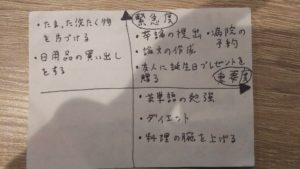 緊急度
・たまった洗たく物
を片づける
・日用品の買い出し
をする
・英語の提出
・病院の
予約
・論文の作成
・友人に誕生日プレゼントを
贈る
重要度
・英単語の勉強
・ダイエット
・料理の腕を上げる